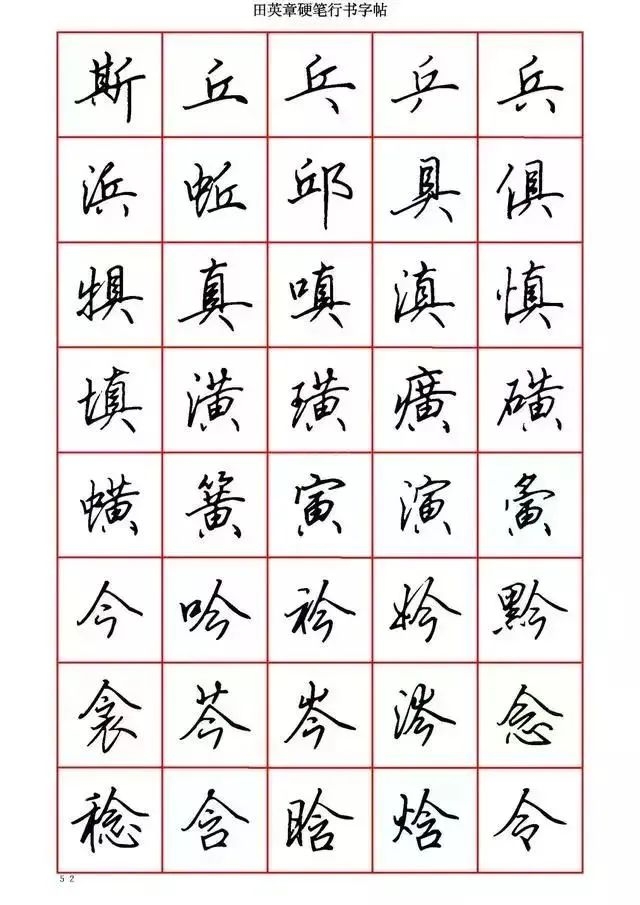 田英章硬笔行书字帖
斯丘乓乒兵
浜蚯邱具俱
犋真嗔滇慎
填潢璜癀磺
蟥簧寅演夤
今吟衿妗黔
衾芩岑涔念
稔含晗焓令
52